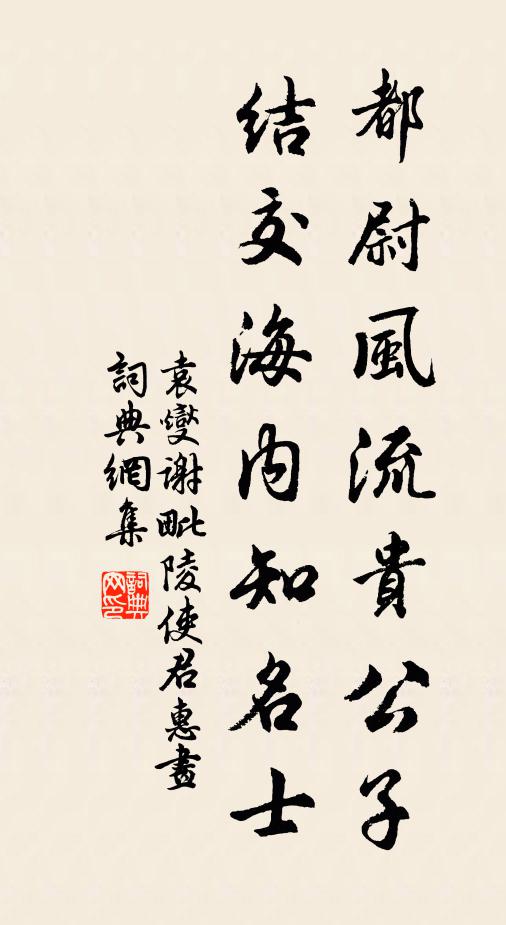 都尉風流貴公子
結交海內知名士
袁燮謝毗陵使君惠畫
詞典網集
詞典网印